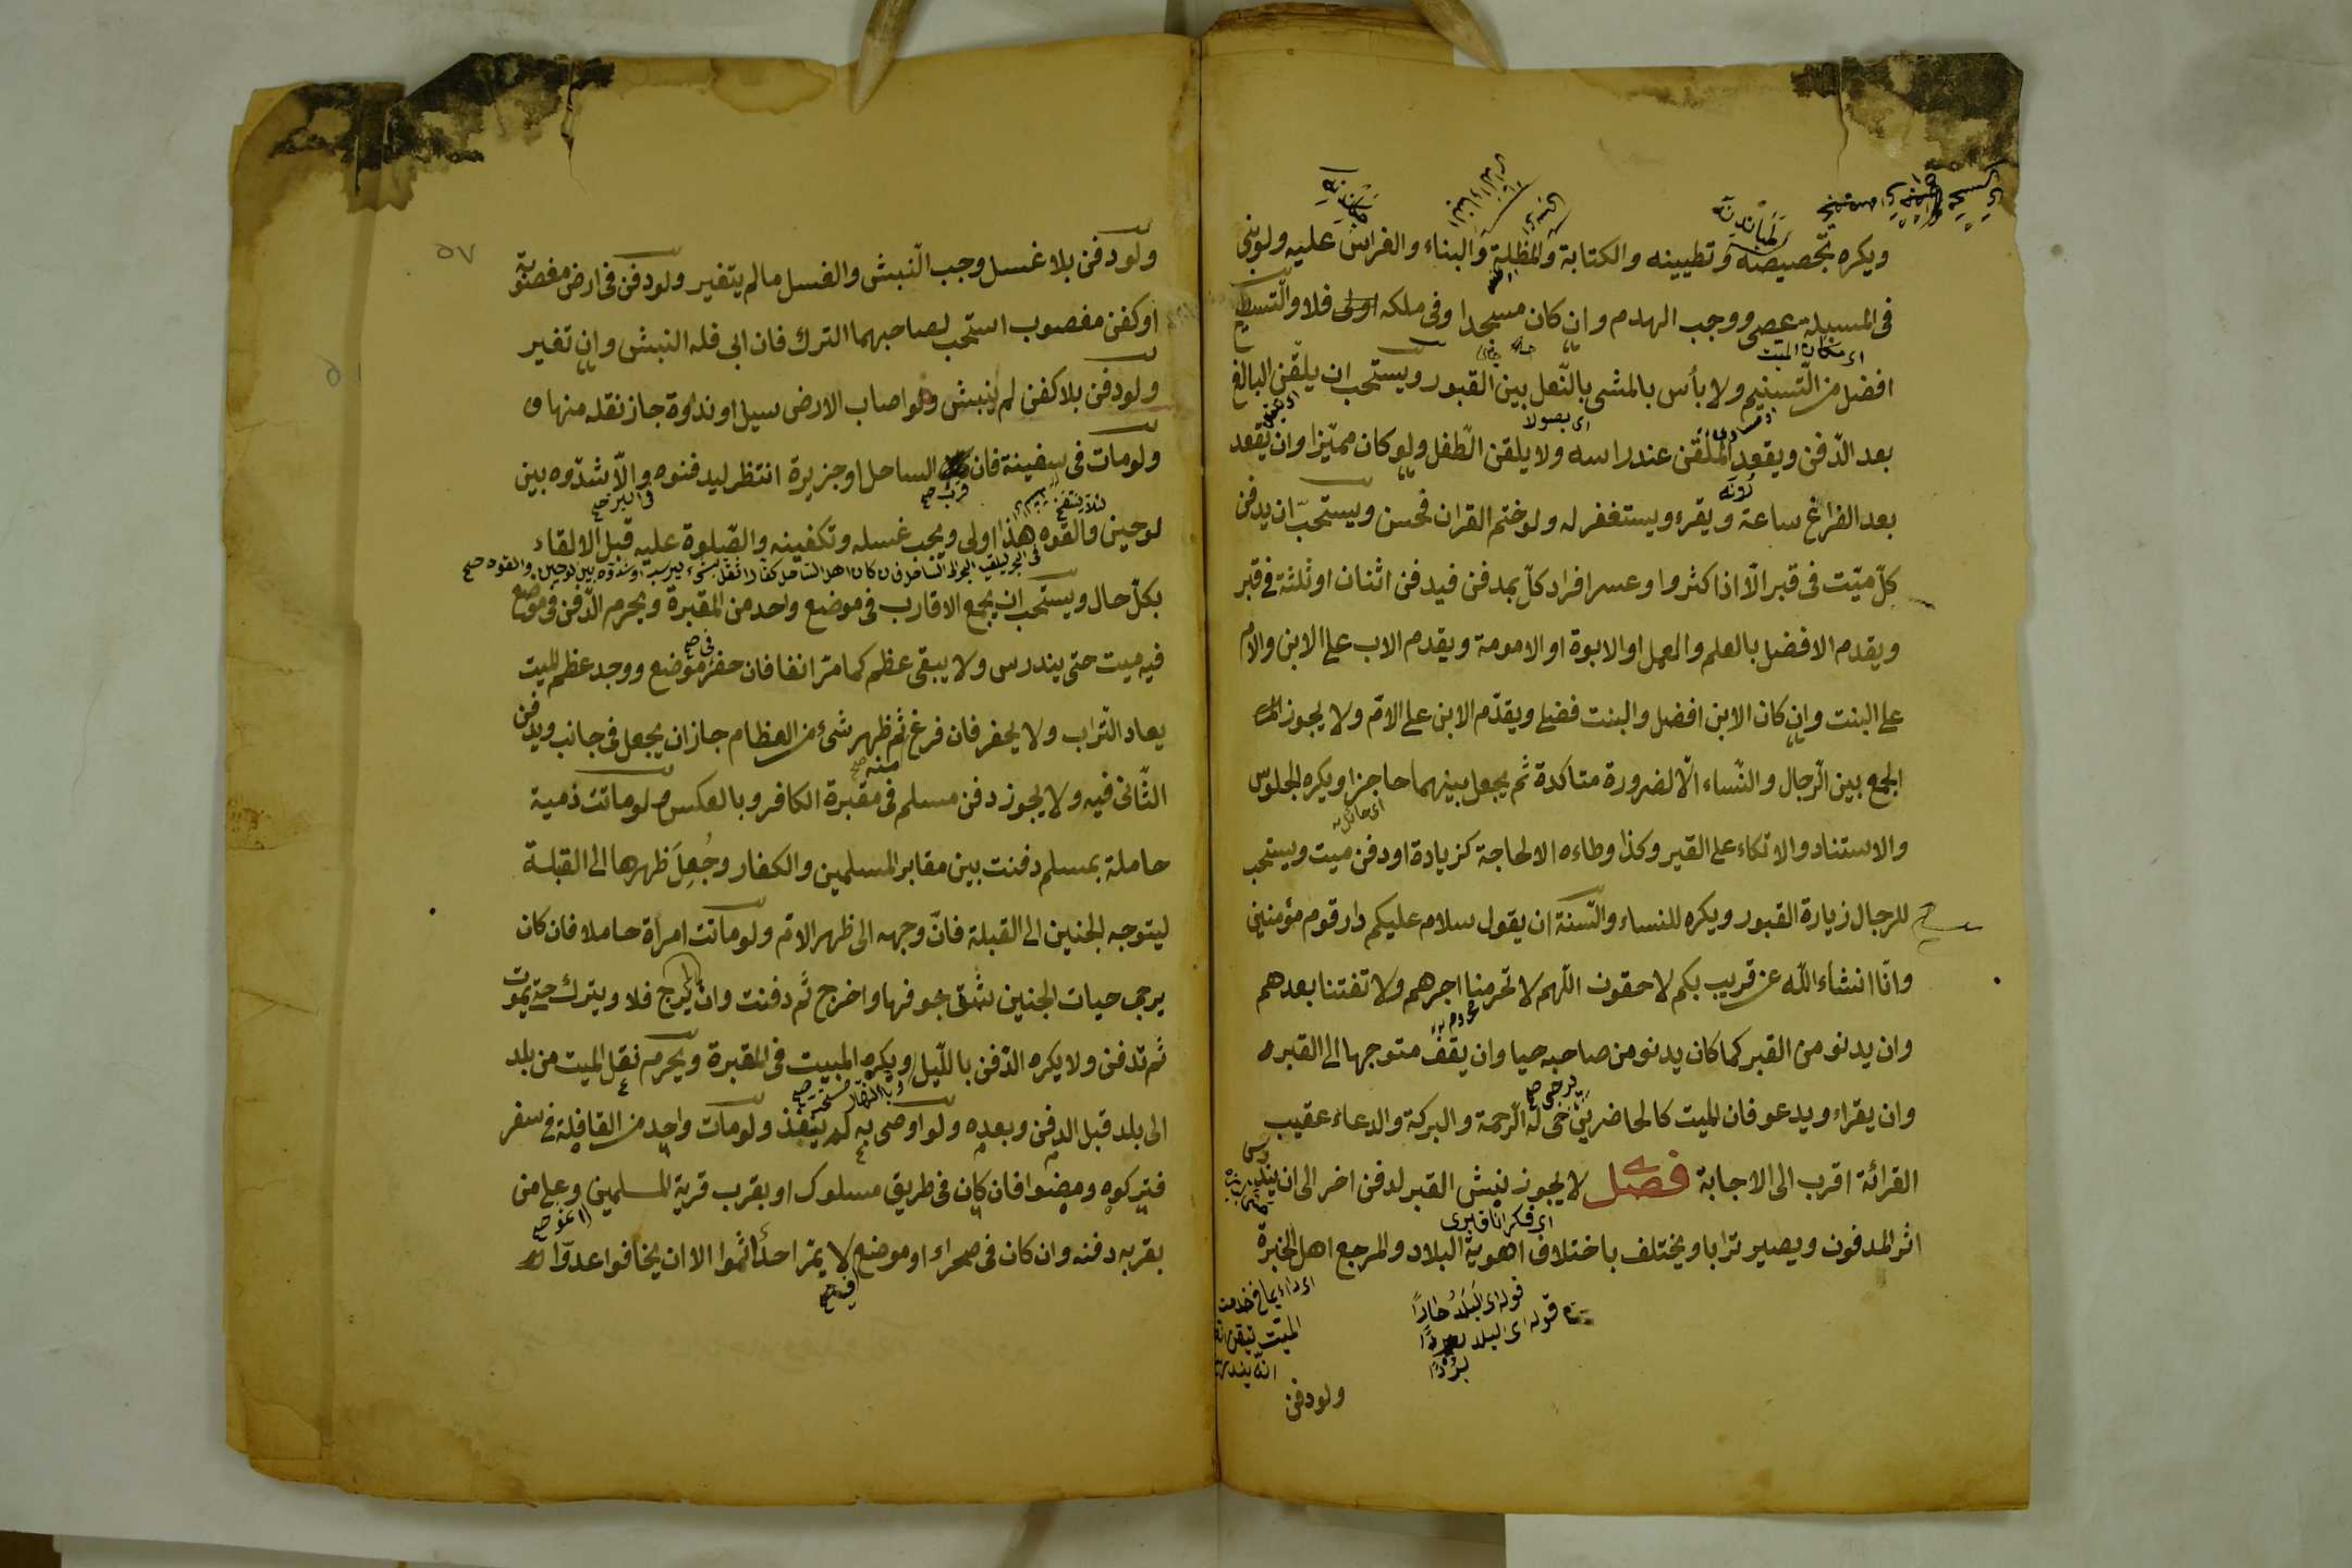 ويكره تجصيصه وتطيينه والكتابة والمظلة والبناء والغراس عليه ولو بنى
فى المسبلة عصى ووجب الهدم وان كان مسجدا وفى ملكه فلا والتسطيح
اى مكان الميت
افضل من التسنيم ولا بأس بالمشى بالنعل بين القبور ويستحب ان يلقن البالغ
بعد الدفن ويقعد الملقن عند راسه ولا يلقن الطفل ولو كان مميزا وان يقعد
بعد الفراغ ساعة ويقرء ويستغفر له ولو ختم القران فحسن ويستحب ان يدفن
كل ميت فى قبر الا اذا كثروا وعسر افراد كل بمدفن فيدفن اثنان او ثلثة فى قبر
ويقدم الافضل بالعلم والعمل او الابوة او الامومة ويقدم الاب على الابن والام
على البنت وان كان الابن افضل والبنت فضلى ويقدم الابن على الام ولا يجوز
الجمع بين الرجال والنساء الا لضرورة متاكدة ثم يجعل بينهما حاجزا ويكره الجلوس
والاستناد والاتكاء على القبر وكذا وطاءه الا لحاجة كزيادة او دفن ميت ويستحب
للرجال زيارة القبور ويكره للنساء والسنة ان يقول سلام عليكم دار قوم مؤمنين
وانا انشاء الله عن قريب بكم لاحقون اللهم لا تحرمنا اجرهم ولا تفتنا بعدهم
وان يدنو من القبر كما كان يدنو من صاحبه حيا وان يقف متوجها الى القبر
يرجى صح
وان يقراء ويدعو فان الميت كالحاضر له الرحمة والبركة والدعاء عقيب
القرائة اقرب الى الاجابة فصل لا يجوز نبش القبر لدفن اخر الى ان
اثر المدفون ويصير ترابا ويختلف باختلاف اهوية البلاد والمرجع اهل الخبرة
ولو دفن
٥٧
ولو دفن بلا غسل وجب النبش والغسل ما لم يتغير ولو دفن فى ارض مغصوبة
او كفن مغصوب استحب لصاحبهما الترك فان ابى فله النبش وان تغير
ولو دفن بلا كفن لم ينبش ولو اصاب الارض سيل او نداوة جاز نقله منها
ولو مات فى سفينة فان الساحل او جزيرة انتظر ليدفنوه والا شدوه بين
قرب صح
لئلا ينتفخ
لوحين والقوه هذا اولى ويجب غسله وتكفينه والصلوة عليه قبل الالقاء
بكل حال ويستحب ان يجمع الاقارب فى موضع واحد من المقبرة ويحرم الدفن فى موضع
فيه ميت حتى يندرس ولا يبقى عظم كما مر انفا فان حفر موضع ووجد عظم الميت
يعاد التراب ولا يحفر فان فرغ ثم ظهر شىء من العظام جاز ان يجعل فى جانب ويدفن
منه صح
الثانى فيه ولا يجوز دفن مسلم فى مقبرة الكافر وبالعكس ولو ماتت ذمية
حاملة بمسلم دفنت بين مقابر المسلمين والكفار وجعل ظهرها الى القبلة
ليتوجه الجنين الى القبلة فان وجهه الى ظهر الام ولو ماتت امراة حاملا فان كان
يرجى حيات الجنين شق جوفها واخرج ثم دفنت وان لم يرج فلا ويترك حتى يموت
ثم تدفن ولا يكره الدفن بالليل ويكره المبيت فى المقبرة ويحرم نقل الميت من بلد
الى بلد قبل الدفن وبعده ولو اوصى به لم ينفذ ولو مات واحد من القافلة فى سفر
فتركوه ومضوا فان كان فى طريق مسلوك او بقرب قرية المسلمين وعلى من
بقربه دفنه وان كان فى صحراء او موضع لا يمر احد اثموا الا ان يخافوا عدوا
فيه صح